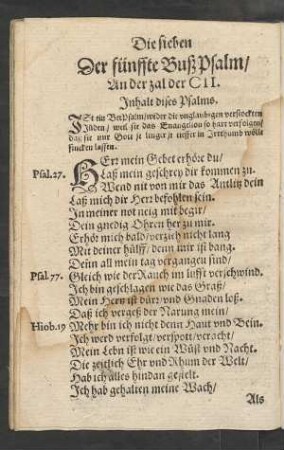 Die sieben
Der fünffte Buß Psalm/
An der zal der CII.
Inhalt dises Psalms.
ISt ein Betpsalm/wider die unglaubigen verstockten
Jüden/ weil sie das Euangelion so hart verfolgen/
das sie nur Gott je lenger je tieffer in Irrthumb wölle
sincken lassen.
Psal. 27. HErr mein Gebet erhöre du/
Laß mein geschrey dir kommen zu.
Wend nit von mir das Antlitz dein
Laß mich dir Herr befohlen sein.
In meiner not neig mit begir/
Dein gnedig Ohren her zu mir.
Erhör mich bald/verzich nicht lang
Mit deiner hülff/denn mir ist bang.
Denn all mein tag vergangen sind/
Psal. 77. Gleich wie der Rauch im lufft verschwind.
Ich bin geschlagen wie das Graß/
Mein Hertz ist dürr/und Gnaden loß.
Daß ich vergeß der Narung mein/
Hiob. 19 Mehr bin ich nicht denn Haut und Bein.
Ich werd verfolgt/verspott/veracht/
Mein Lebn ist wie ein Wüst und Nacht.
Die zeitlich Ehr und Rhum der Welt/
Hab ich alles hindan gestelt.
Ich hab gehalten meine Wach/
Als